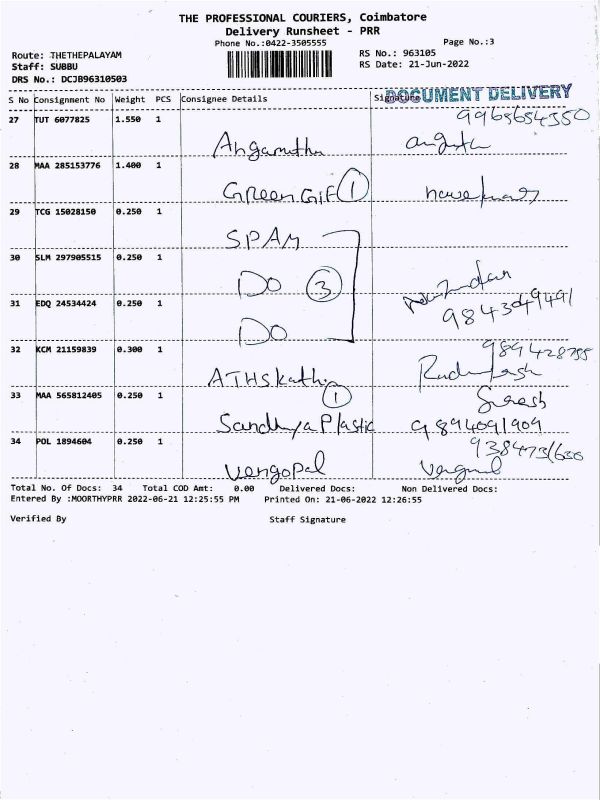 THE PROFESSIONAL COURIERS, Coimbatore
Delivery Runsheet - PRR
Phone No.:0422-3505555 Page No.:3
Route: THETHEPALAYAM RS No.: 963105
Staff: SUBBU RS Date: 21-Jun-2022
DRS No.: DCJB96310503
DOCUMENT DELIVERY
S No Consignment No Weight PCS Consignee Details Signature
27 TUT 6077825 1.550 1 9965654350
28 MAA 285153776 1.400 1
Green Gif 1
29 TCG 15028150 0.250 1
SPAM
30 SLM 297905515 0.250 1
Do 3
31 EDQ 24534424 0.250 1 9843049491
Do
32 KCM 21159839 0.300 1
33 MAA 565812405 0.250 1 Suresh
1
Sandhya Plastic 9894091909
34 POL 1894604 0.250 1
Vengopal
Total No. Of Docs: 34 Total COD Amt: 0.00 Delivered Docs: Non Delivered Docs:
Entered By :MOORTHYPRR 2022-06-21 12:25:55 PM Printed On: 21-06-2022 12:26:55
Verified By Staff Signature